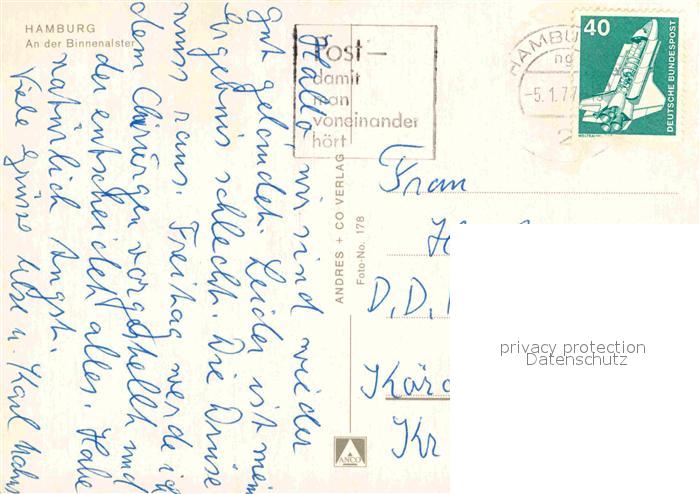 HAMBURG
An der Binnenalster
Hallo, wir sind wieder
gut gelandet. Leider ist mein
Ergebnis schlecht. Die Drüse
muss raus. Freitag werde ich
dem Chirurgen vorgestellt und
der entscheidet alles. Habe
natürlich Angst.
Viele Grüsse Ilse u. Karl
ANDRES + CO VERLAG
Foto-No. 178
ANCO
Post—
damit
man
voneinander
hört
HAMBU
-5.1.77
40
DEUTSCHE BUNDESPOST
Frau
D.D.
Kr
privacy protection
Datenschutz